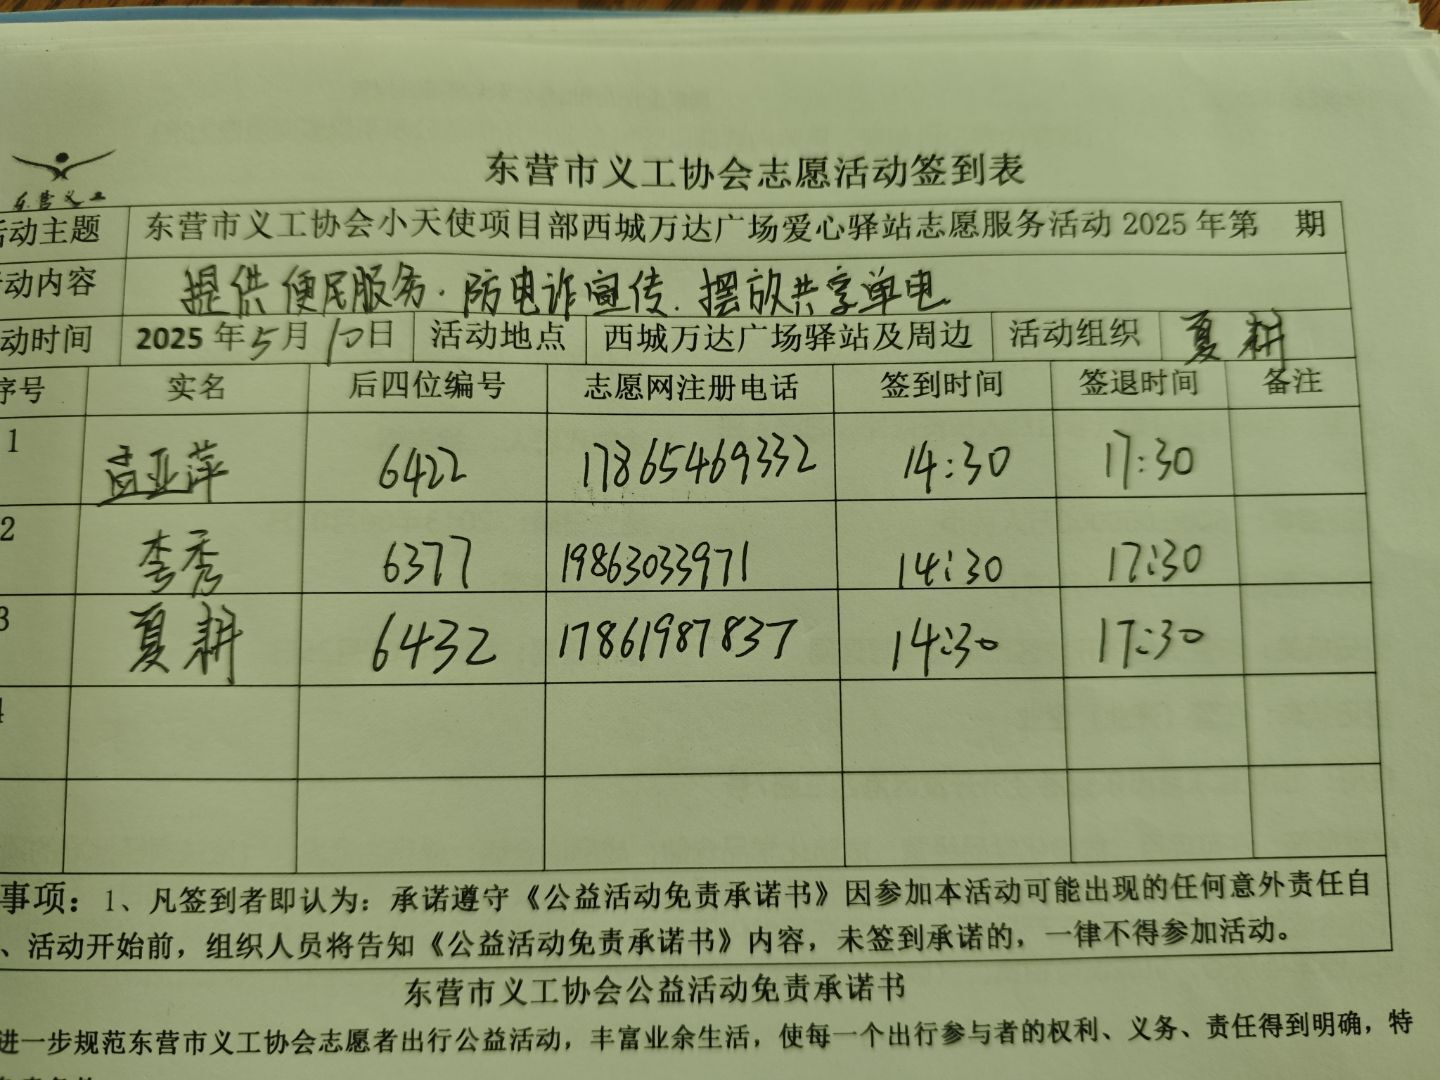 东营义工
东营市义工协会志愿活动签到表
活动主题 东营市义工协会小天使项目部西城万达广场爱心驿站志愿服务活动 2025 年第 期
活动内容 提供便民服务.防电诈宣传.摆放共享单电
动时间 2025 年 5 月 10 日 活动地点 西城万达广场驿站及周边 活动组织 夏耕
序号 实名 后四位编号 志愿网注册电话 签到时间 签退时间 备注
1 孟亚萍 6422 17865469332 14:30 17:30
2 李秀 6377 19863033971 14:30 17:30
3 夏耕 6432 17861987837 14:30 17:30
4
事项：1、凡签到者即认为：承诺遵守《公益活动免责承诺书》因参加本活动可能出现的任何意外责任自
、活动开始前，组织人员将告知《公益活动免责承诺书》内容，未签到承诺的，一律不得参加活动。
东营市义工协会公益活动免责承诺书
进一步规范东营市义工协会志愿者出行公益活动，丰富业余生活，使每一个出行参与者的权利、义务、责任得到明确，特